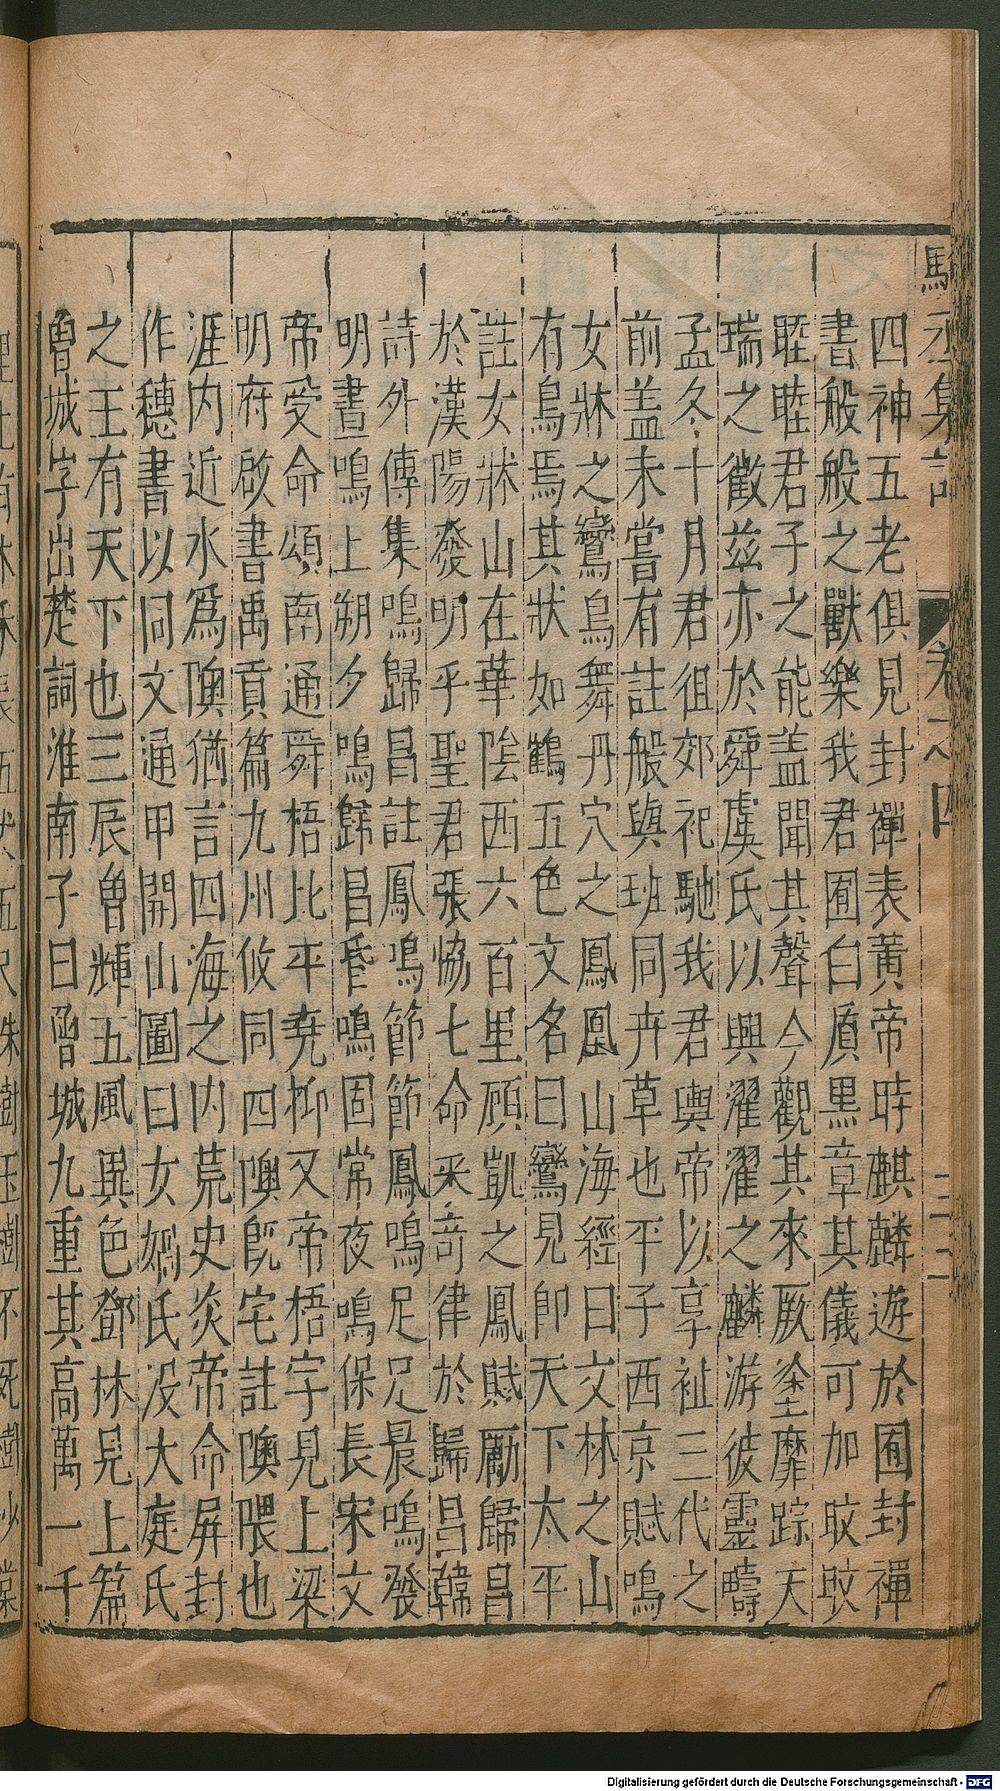 四神五老俱見封禪表黃帝時麒麟遊於囿封禪
書般般之獸樂我君囿白質黑章其儀可加旼旼
睦睦君子之能蓋聞其聲今觀其來厥塗靡踪天
瑞之徵茲亦於舜虞氏以興濯濯之麟游彼靈疇
孟冬十月君徂郊祀馳我君輿帝以享祉三代之
前盖未嘗有註般與班同卉草也平子西京賦鳴
女牀之鸞鳥舞丹穴之鳳凰山海經曰文林之山
有鳥焉其狀如鶴五色文名曰鸞見即天下太平
註女牀山在華陰西六百里顧凱之鳳賦勵歸昌
於漢陽發明乎聖君張協七命采奇律於歸昌韓
詩外傳集鳴歸昌註鳳鳴節節鳳鳴足足晨鳴發
明晝鳴上朔夕鳴歸昌昏鳴固常夜鳴保長宋文
帝受命頌南通舜梧比平堯抑又帝梧字見上梁
明府啟書禹貢篇九州攸同四隩既宅註隩隈也
涯內近水為隩猶言四海之內荒史炎帝命屏封
作穗書以同文通甲開山圖曰女媧氏没大庭氏
之王有天下也三辰曾輝五風異色鄧林見上篇
曾城字出楚詞淮南子曰曾城九重其高萬一千
集
卷之四